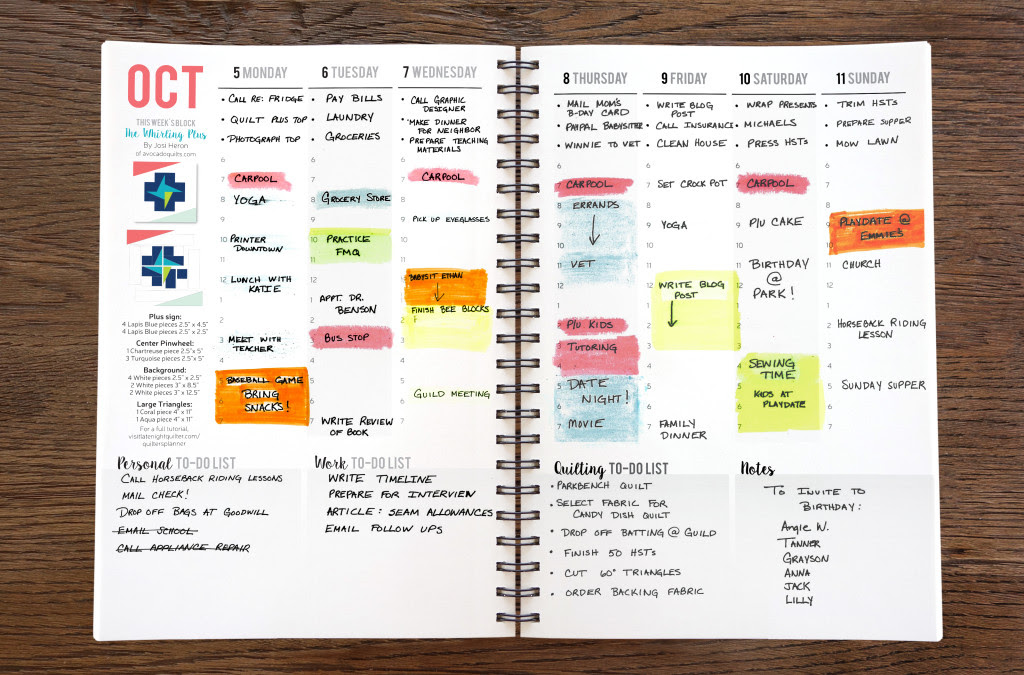 OCT
THIS WEEK'S BLOCK
The Whirling Plus
By Josi Heron
of avocadoquilts.com
Plus sign:
4 Lapis Blue pieces 2.5" x 4.5"
4 Lapis Blue pieces 2.5" x 2.5"
Center Pinwheel:
1 Chartreuse piece 2.5"x 5"
3 Turquoise pieces 2.5"x 5"
Background:
4 White pieces 2.5" x 2.5"
2 White pieces 3" x 8.5"
2 White pieces 3" x 12.5"
Large Triangles:
1 Coral piece 4" x 11"
1 Aqua piece 4" x 11"
For a full tutorial,
visit latenightquilter.com/
quiltersplanner
5 MONDAY
• CALL RE: FRIDGE
• QUILT PLUS TOP
• PHOTOGRAPH TOP
6
7 CARPOOL
8 YOGA
9
10 PRINTER
DOWNTOWN
12 LUNCH WITH
KATIE
3 MEET WITH
TEACHER
BASEBALL GAME
BRING
SNACKS!
7
6 TUESDAY
• PAY BILLS
• LAUNDRY
• GROCERIES
6
7
8 GROCERY STORE
9
10 PRACTICE
FMQ
11
12
APPT. DR.
BENSON
2
3 BUS STOP
4
5
6
7 WRITE REVIEW
OF BOOK
7 WEDNESDAY
• CALL GRAPHIC
DESIGNER
• MAKE DINNER
FOR NEIGHBOR
• PREPARE TEACHING
MATERIALS
6
7 CARPOOL
8
9 PICK UP EYEGLASSES
10
11
BABYSIT ETHAN
FINISH BEE BLOCKS
2
3
4
5 GUILD MEETING
6
7
Personal TO-DO LIST
CALL HORSEBACK RIDING LESSONS
MAIL CHECK!
DROP OFF BAGS AT GOODWILL
EMAIL SCHOOL
CALL APPLIANCE REPAIR
Work TO-DO LIST
WRITE TIMELINE
PREPARE FOR INTERVIEW
ARTICLE: SEAM ALLOWANCES
EMAIL FOLLOW UPS
8 THURSDAY
• MAIL MOM'S
B-DAY CARD
• PAYPAL BABYSITTER
• WINNIE TO VET
6
7 CARPOOL
8 ERRANDS
9
10
11 VET
12
1
2 P/U KIDS
3 TUTORING
4
5 DATE
NIGHT!
6
7 MOVIE
9 FRIDAY
• WRITE BLOG
POST
• CALL INSURANCE
• CLEAN HOUSE
6
7 SET CROCK POT
8
9 YOGA
10
11
12 WRITE BLOG
POST
1
2
3
4
5
6
7 FAMILY
DINNER
10 SATURDAY
• WRAP PRESENTS
• MICHAELS
• PRESS HSTs
6
7 CARPOOL
8
9 P/U CAKE
10
11 BIRTHDAY
@
PARK!
1
2
3
4 SEWING
TIME
5 KIDS AT
PLAYDATE
6
7
11 SUNDAY
• TRIM HSTs
• PREPARE SUPPER
• MOW LAWN
6
7
8
9 PLAYDATE @
EMMIE'S
10
11 CHURCH
12
1
2 HORSEBACK RIDING
LESSON
3
4
5 SUNDAY SUPPER
6
7
Quilting TO-DO LIST
• PARKBENCH QUILT
• SELECT FABRIC FOR
CANDY DISH QUILT
• DROP OFF BATTING @ GUILD
• FINISH 50 HSTs
• CUT 60° TRIANGLES
• ORDER BACKING FABRIC
Notes
TO INVITE TO
BIRTHDAY:
Angie W.
TANNER
GRAYSON
ANNA
JACK
LILLY